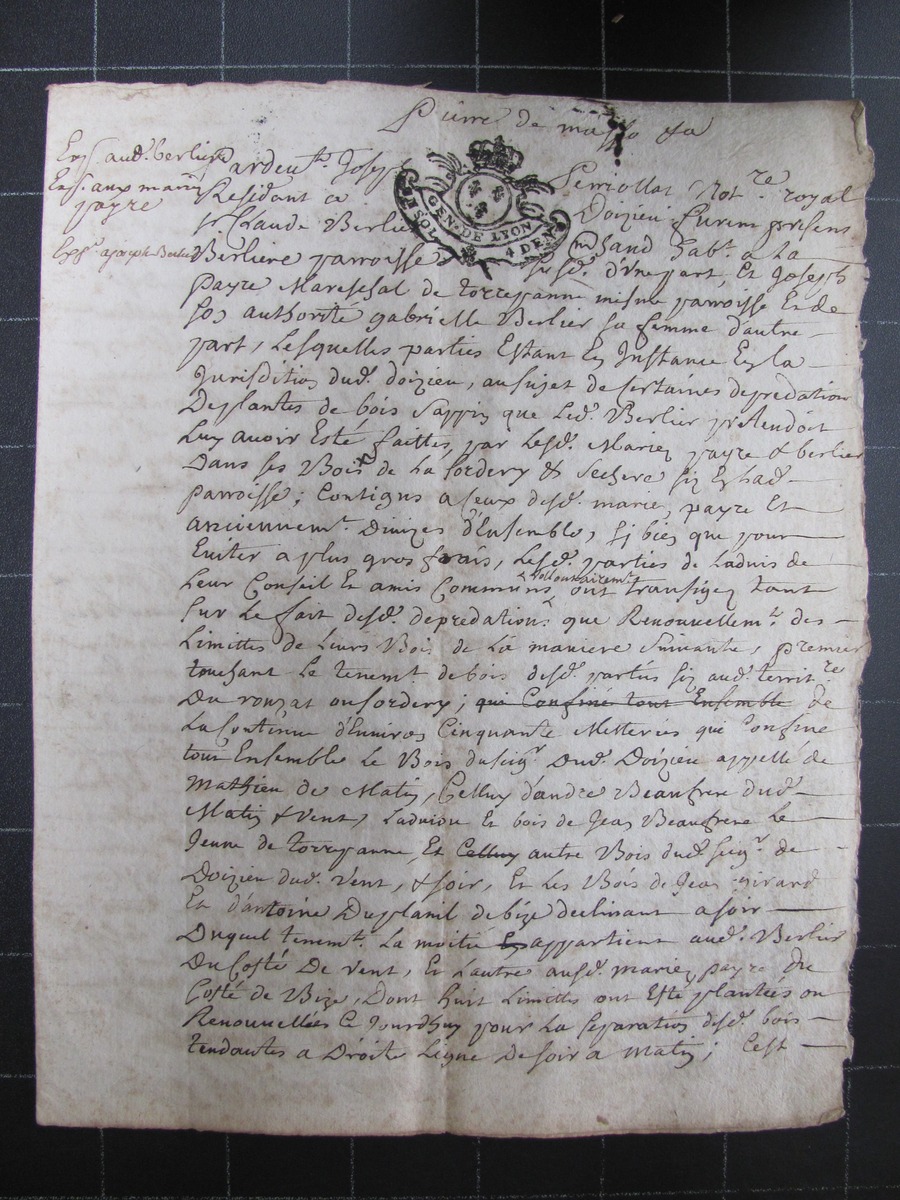 Exp. aud. berlier
Exp. aux mariés
payre
Exp. a joseph Berlier
GEN. DE LYON
4 DEN
Pardeut. Joseph Perriollat Not.re royal
Residant a Doizieu furent presens
Sr. Claude Berlier md. hab.t a la
Berliere parroisse susd. d'vne part, Et Joseph
payre Mareschal de torrepanne mesme parroisse Et de
son authorité gabrielle Berlier sa femme d'autre
part, Lesquelles parties Estant En Instance En la
Jurisdition dud. doizieu, au sujet de sertaines depredations
De plantes de bois sappin que Led. Berlier pretendoit
Luy avoir Esté faittes par Lesd. Mariez payre & berlier
Dans ses Bois de La sordery & sechere siz En lad.
parroisse; Contigus a seux desd. mariez payre Et
anciennem.t Divizes d'Ensemble, si bien que pour
Eviter a plus gros frais, Lesd. parties de L'advis de
Leur Conseil Et amis Communs vollontairem.t ont transigez tant
sur Le fait desd. depredations que Renouvellem.t des
Limittes de Leurs Bois de La maniere Suivante, premier
touchant Le tenem.t de bois desd. partiés siz aud. territ.re
Du ronzat ou sordery; qui Confine tout Ensemble de
La Contenue d'Environ Cinquante Metterées qui Confine
tout Ensemble Le Bois du seig.r Dud. Doizieu appellé de
Mathieu de Matin, Celluy d'andre Beaufrere dud.
Matin & vent, Et bois de Jean Beaufrere Le
Jeune de torrepanne, Et Celluy autre Bois dud. seig.r de
Doizieu dud. vent, & soir, Et les Bois de Jean girard
Et d'antoine Duplanil de bize declinant a soir
Duquel tenem.t La moitié En appartient aud. Berlier
Du Costé De vent, Et L'autre ausd. mariez payre Du
Costé de Bize, Dont huit Limittes ont Esté plantées ou
Renouvellées Ce Jourdhuy pour La separation desd. bois
tendantes a Droite Ligne De soir a Matin; Cest